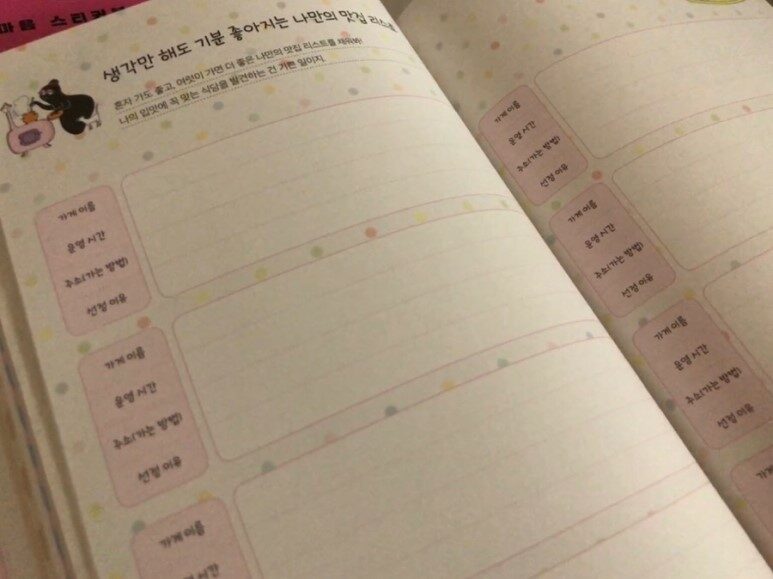 마음 스티커북
생각만 해도 기분 좋아지는 나만의 맛집 리스트
혼자 가도 좋고, 여럿이 가면 더 좋은 나만의 맛집 리스트를 채워봐!
나의 입맛에 꼭 맞는 식당을 발견하는 건 기쁜 일이지.
가게 이름
운영 시간
주소(가는 방법)
선정 이유
가게 이름
운영 시간
주소(가는 방법)
선정 이유
가게 이름
운영 시간
가게 이름
운영 시간
주소(가는 방법)
선정 이유
가게 이름
운영 시간
주소(가는 방법)
선정 이유
가게 이름
운영 시간
주소(가는 방법)
선정 이유